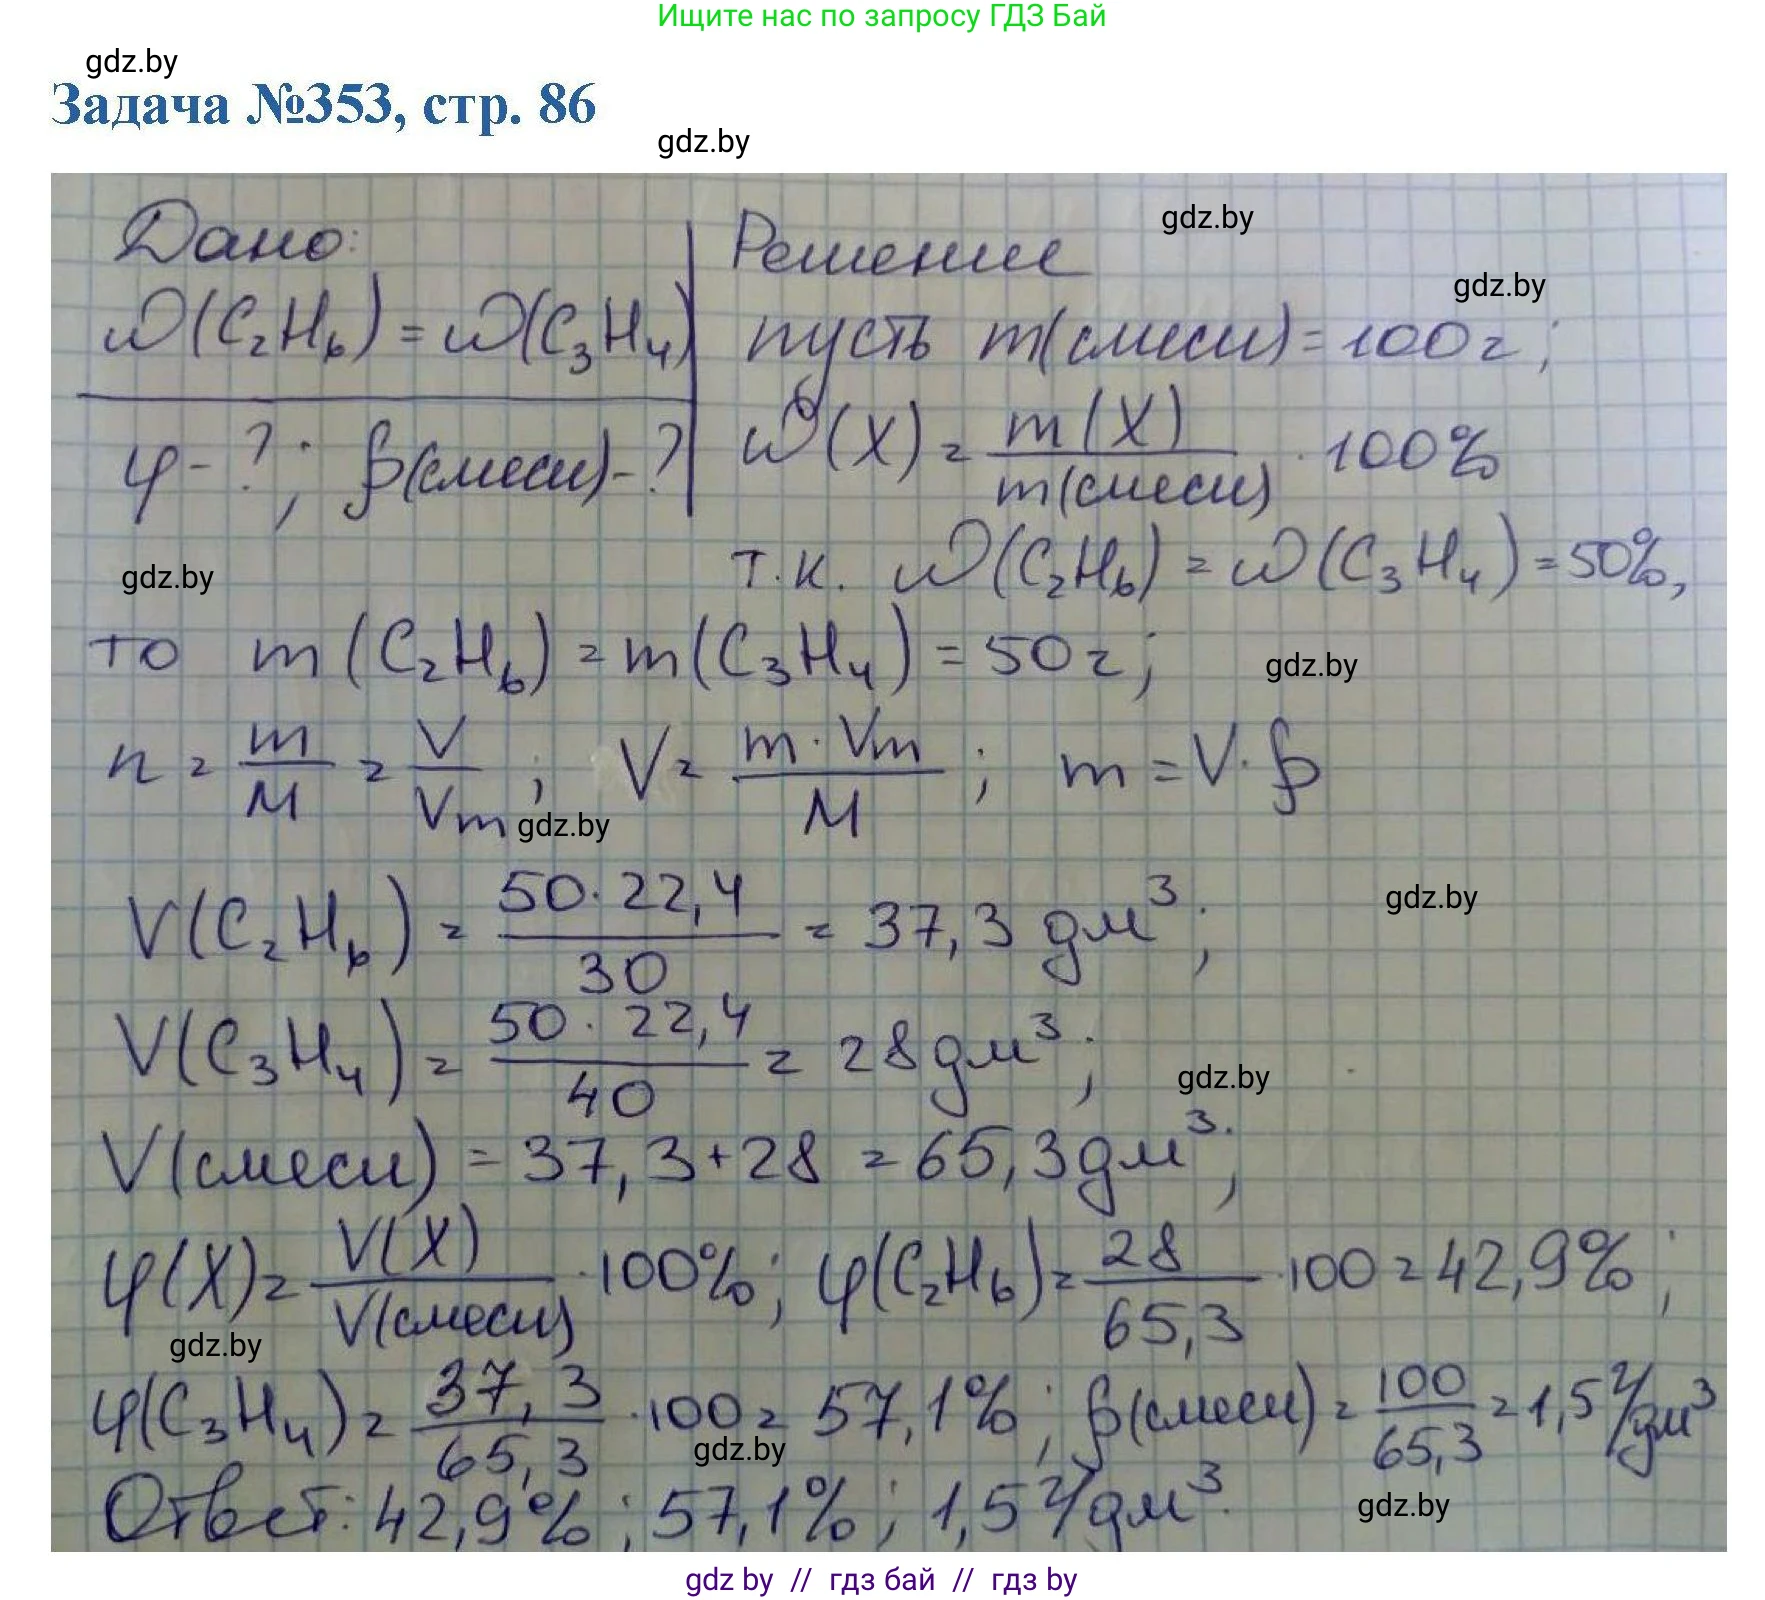 Ищите нас по запросу ГДЗ Бай
gdz.by
Задача №353, стр. 86
gdz.by
Дано:
ω(C₂H₆) = ω(C₃H₄)
φ - ?; ρ(смеси) - ?
Решение
gdz.by
gdz.by
пусть m(смеси) = 100 г;
ω(X) = m(X) / m(смеси) · 100%
т.к. ω(C₂H₆) = ω(C₃H₄) = 50%,
gdz.by
то m(C₂H₆) = m(C₃H₄) = 50 г;
gdz.by
n = m/M = V/Vm; V = m · Vm / M; m = V · ρ
gdz.by
V(C₂H₆) = 50 · 22,4 / 30 = 37,3 дм³;
gdz.by
V(C₃H₄) = 50 · 22,4 / 40 = 28 дм³;
gdz.by
V(смеси) = 37,3 + 28 = 65,3 дм³;
φ(X) = V(X) / V(смеси) · 100%; φ(C₂H₆) = 28 / 65,3 · 100 = 42,9%;
gdz.by
φ(C₃H₄) = 37,3 / 65,3 · 100 = 57,1%; ρ(смеси) = 100 / 65,3 = 1,5 г/дм³
gdz.by
Ответ: 42,9%; 57,1%; 1,5 г/дм³.
gdz.by
gdz by // гдз бай // гдз by